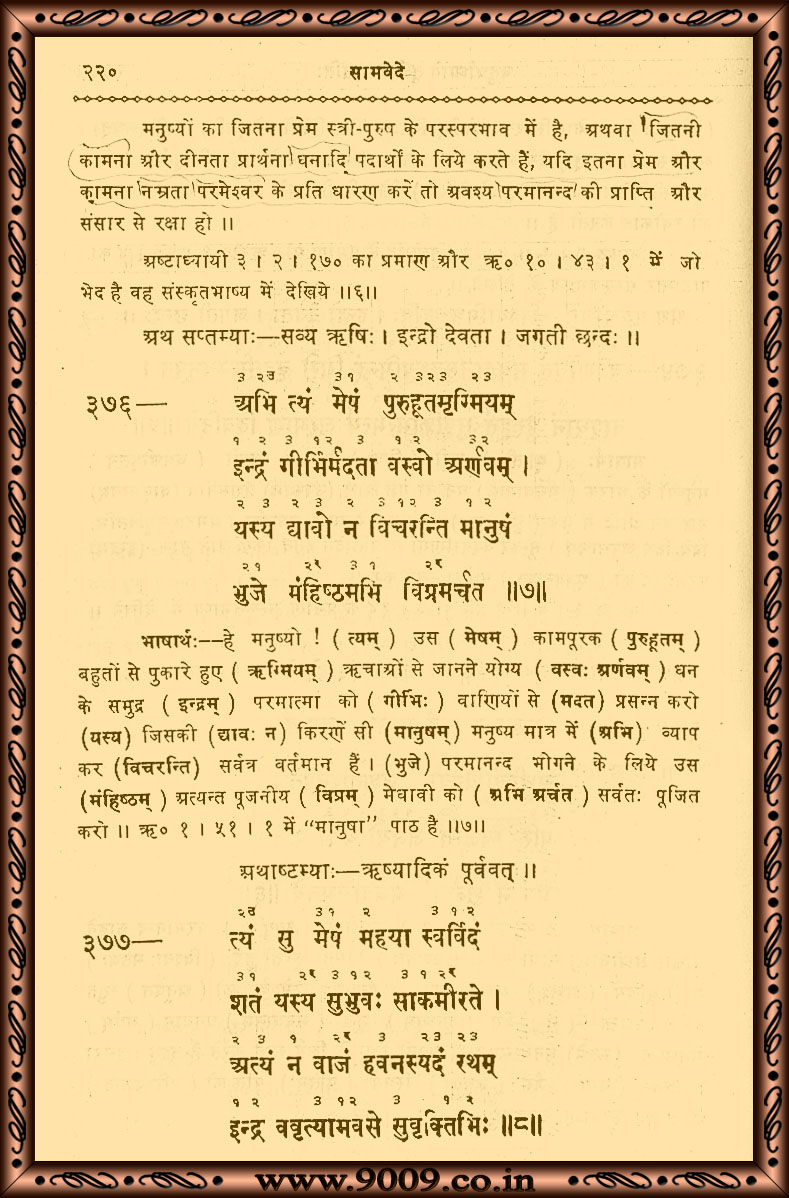 २२० सामवेदे
मनुष्यों का जितना प्रेम स्त्री-पुरुष के परस्परभाव में है, अथवा जितनी
कामना और दीनता प्रार्थना धनादि पदार्थों के लिये करते हैं, यदि इतना प्रेम और
कामना नम्रता परमेश्वर के प्रति धारण करें तो अवश्य परमानन्द की प्राप्ति और
संसार से रक्षा हो ॥
अष्टाध्यायी ३ । २ । १७० का प्रमाण और ऋ० १० । ४३ । १ में जो
भेद है वह संस्कृतभाष्य में देखिये ॥६॥
अथ सप्तम्याः—सव्य ऋषिः । इन्द्रो देवता । जगती छन्दः ॥
३ २उ ३१ २ ३२३ २३
३७६— अभि त्यं मेषं पुरुहूतमृग्मियम्
१ २ ३ १२ ३ १२ ३२
इन्द्रं गीर्भिर्मदता वस्वो अर्णवम् ।
२ ३ २ ३ २ ३१२ ३ १२
यस्य द्यावो न विचरन्ति मानुषं
२१ २र ३१ २र
भुजे मंहिष्ठमभि विप्रमर्चत ॥७॥
भाषार्थः—हे मनुष्यो ! ( त्यम् ) उस ( मेषम् ) कामपूरक ( पुरुहूतम् )
बहुतों से पुकारे हुए ( ऋग्मियम् ) ऋचाओं से जानने योग्य ( वस्वः अर्णवम् ) धन
के समुद्र ( इन्द्रम् ) परमात्मा को ( गीर्भिः ) वाणियों से (मदत) प्रसन्न करो
(यस्य) जिसकी (द्यावः न) किरणें सी (मानुषम्) मनुष्य मात्र में (अभि) व्याप
कर (विचरन्ति) सर्वत्र वर्तमान हैं । (भुजे) परमानन्द भोगने के लिये उस
(मंहिष्ठम् ) अत्यन्त पूजनीय ( विप्रम् ) मेधावी को ( अभि अर्चत ) सर्वतः पूजित
करो ॥ ऋ० १ । ५१ । १ में “मानुषा” पाठ है ॥७॥
अथाष्टम्याः—ऋष्यादिकं पूर्ववत् ॥
२उ ३१ २ ३ १२
३७७— त्यं सु मेषं महया स्वर्विदं
३१ २र ३१२ ३१ २र
शतं यस्य सुभुवः साकमीरते ।
२ ३ १ २र ३ २३ २३
अत्यं न वाजं हवनस्यदं रथम्
१२ ३ १२ ३ १२
इन्द्र ववृत्यामवसे सुवृक्तिभिः ॥८॥
www.9009.co.in